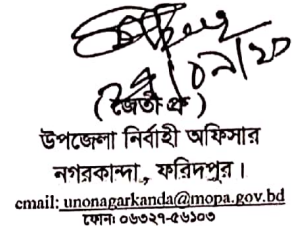 উপজেলা নির্বাহী অফিসার
নগরকান্দা, ফরিদপুর।
email: unonagarkanda@mopa.gov.bd
ফোন: ০৬৩২৭-৫৬১০৩